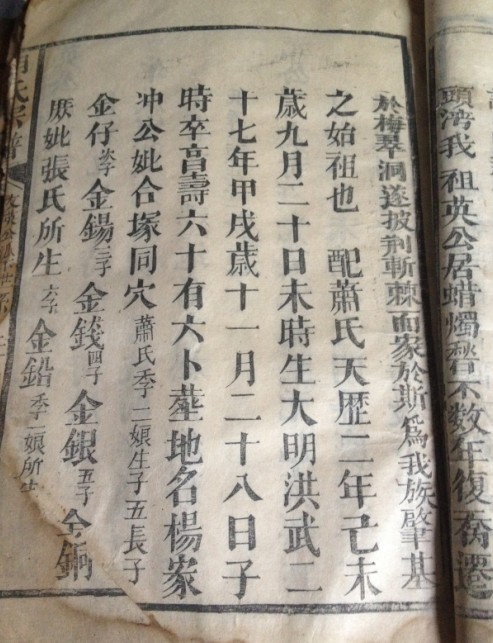 頭湾我祖英公居蜡燭不数年復喬遷
於梅羣洞遂披荆斬棘而家於斯爲我族肇基
之始祖也　配蕭氏天歷二年己未
歲九月二十日未時生大明洪武二
十七年甲戌歲十一月二十八日子
時卒享壽六十有六卜塟地名楊家
冲公妣合塚同穴 蕭氏季二娘生子五長子
金仔 次子 金錫 三子 金錢 四子 金銀 五子 金鍋
厥妣張氏所生 六子 金鉛 季二娘所生